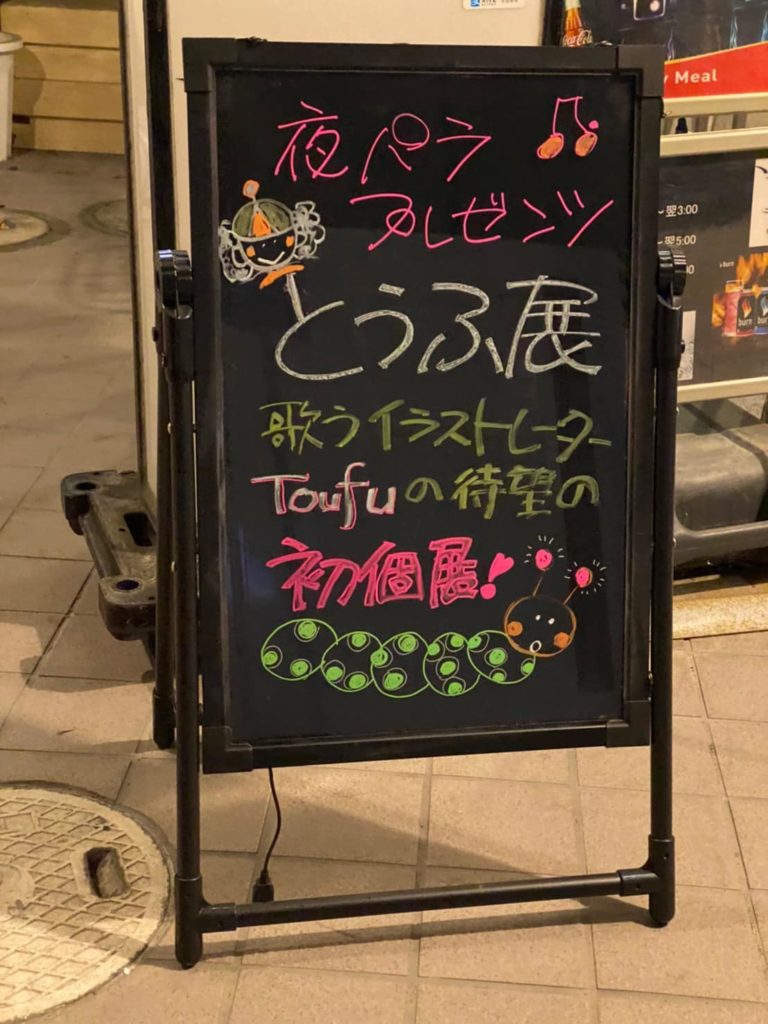 夜パラ
プレゼンツ
とうふ展
歌うイラストレーター
Toufuの待望の
初個展!
Coca-Cola
y Meal
~翌3:00
~翌5:00
burn